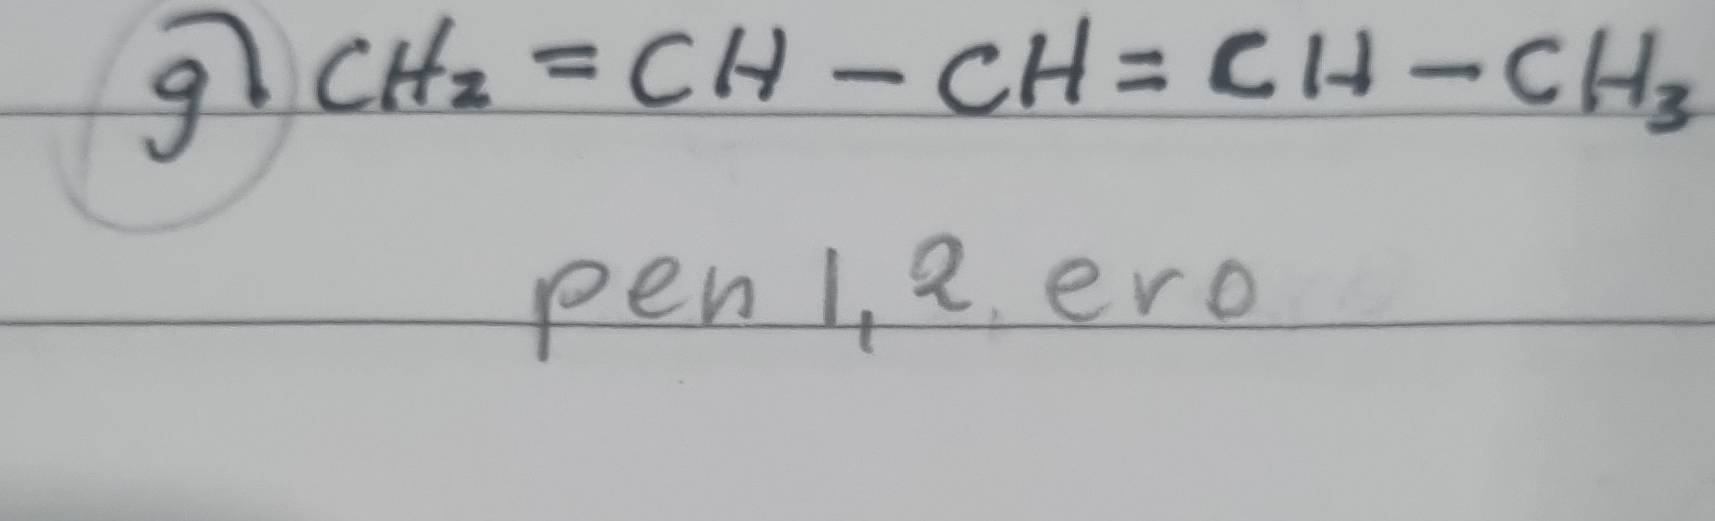 g) CH₂ = CH - CH = CH - CH₃
pen 1,2. ero